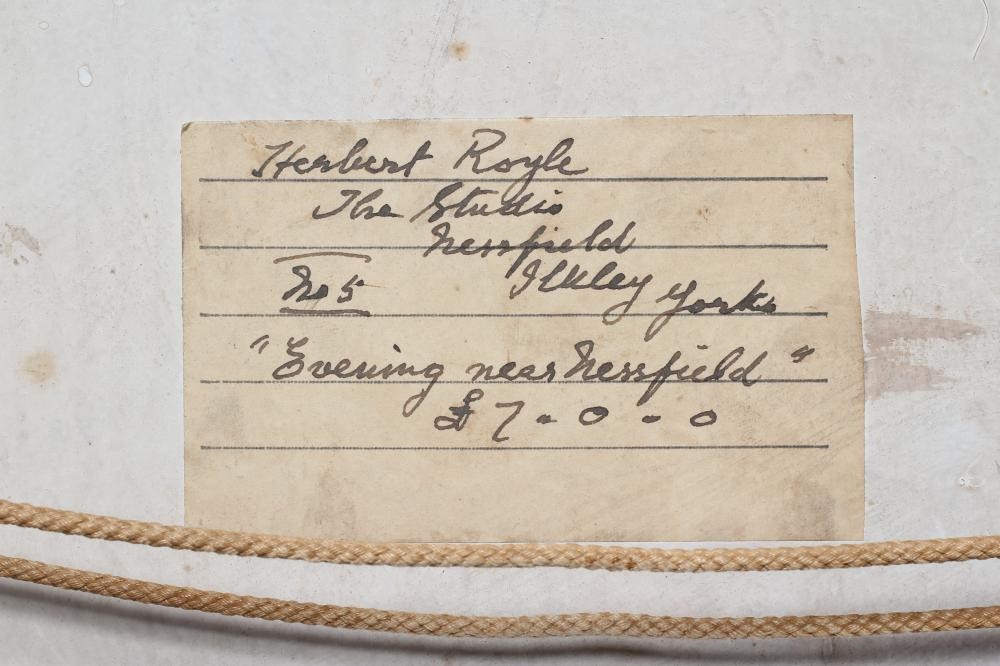 Herbert Royle
The Studio
Nessfield
No 5 Ilkley Yorks
"Evening near Nessfield"
£7-0-0